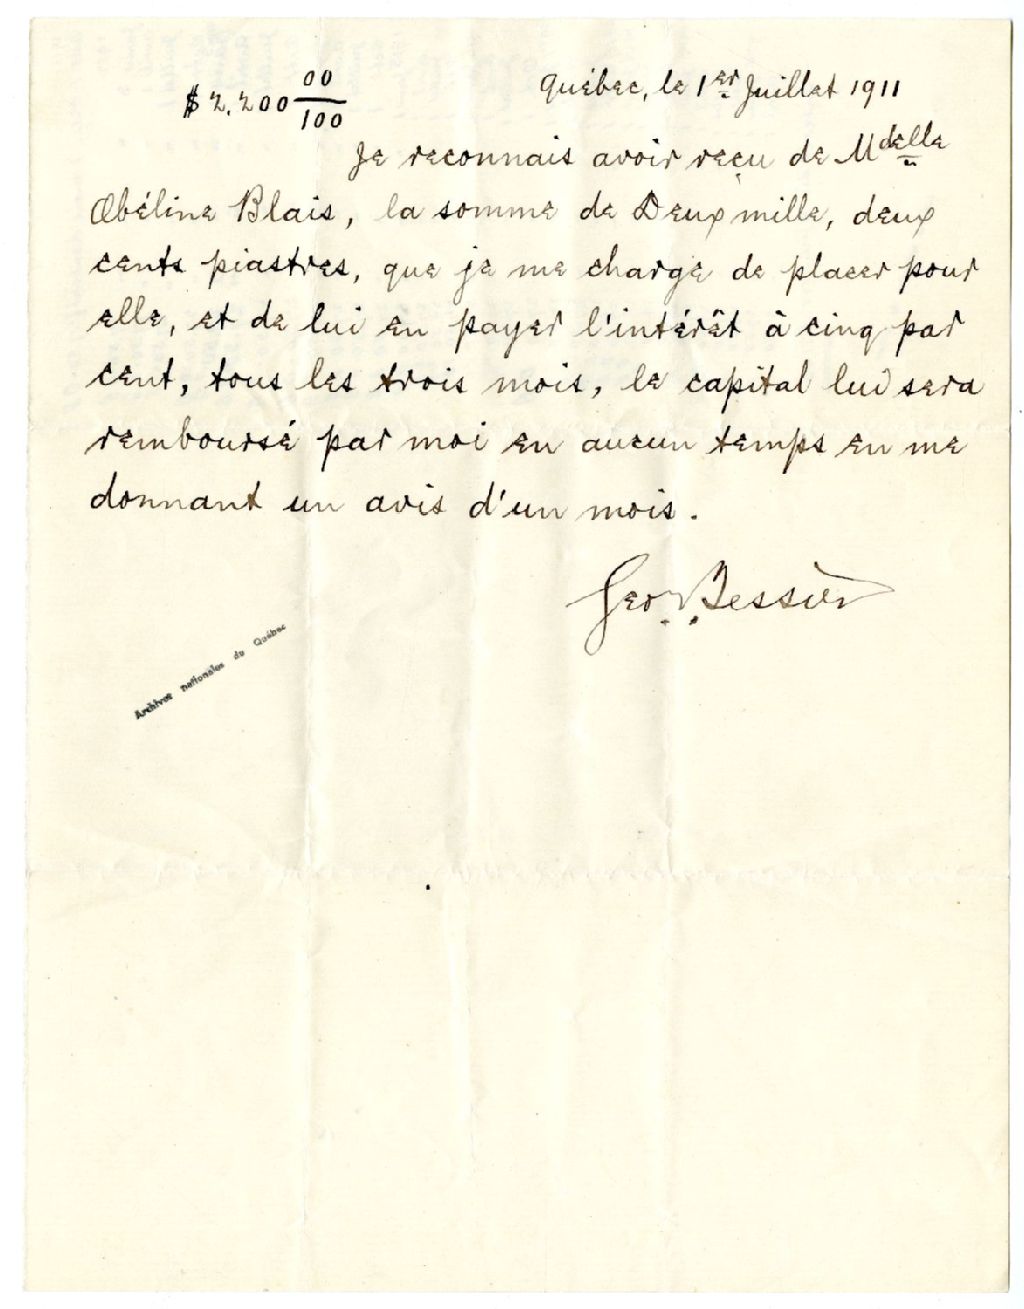 $ 2,200 00/100
Québec, le 1er Juillet 1911
Je reconnais avoir reçu de Mdelle
Obéline Blais, la somme de Deux mille, deux
cents piastres, que je me charge de placer pour
elle, et de lui en payer l'intérêt à cinq par
cent, tous les trois mois, le capital lui sera
remboursé par moi en aucun temps en me
donnant un avis d'un mois.
Geo. Bessier
Archives nationales du Québec